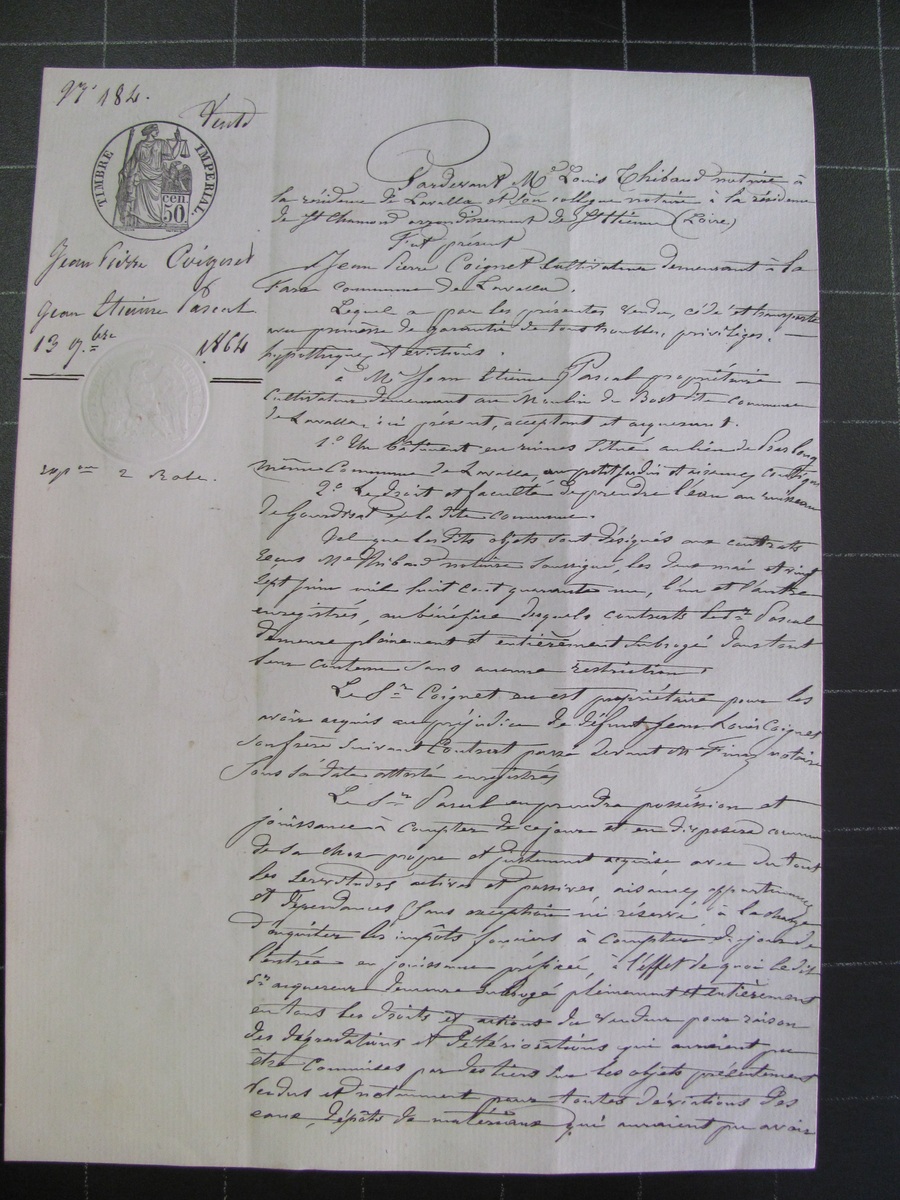 No 184.
Vente
TIMBRE IMPERIAL.
50 cen
Jean Pierre Coignet
Jean Etienne Pascal
13 9.bre 1864
2 Role.
Pardevant Me Louis Thibaud notaire à
la résidence de Lavalla et son collègue notaire à la résidence
de St Chamond arrondissement de St Etienne (Loire)
Fut présent
Jean Pierre Coignet cultivateur demeurant à la
Fara commune de Lavalla.
Lequel a par les présentes vendu, cédé et transporté
avec promesse de garantie de tous troubles, privilèges,
hypothèques, et évictions.
à Mr Jean Etienne Pascal propriétaire
cultivateur demeurant au Moulin du Bost dite commune
de Lavalla, ici présent, acceptant et acquerant.
1.o Un bâtiment en ruines situé au lieu de
même commune de Lavalla, petit jardin et aisances
2.o Le droit et faculté de prendre l'eau au ruisseau
de dite commune.
Tel que les dits objets sont désignés aux contrats
reçus Me Thibaud notaire soussigné, les deux mai et vingt
sept juin mil huit cent quarante un, l'un et l'autre
enregistrés, au bénéfice desquels contrats le Sr Pascal
demeure pleinement et entièrement subrogé dans tout
leur contenu sans aucune restriction.
Le Sr Coignet en est propriétaire pour les
avoir acquis au préjudice de défunt Jean Louis Coignet
son frère suivant contrat passé devant Me Finaz notaire
sous sa date enregistrés
Le Sr Pascal en prendra possession et
jouissance à compter de ce jour et en disposera comme
de sa chose propre et justement acquise avec du tout
les servitudes actives et passives, aisances, appartenances
et dépendances sans exception ni réserve à la charge
d'acquiter les impôts fonciers à compter du jour de
l'entrée en jouissance préfixée, à l'effet de quoi le dit
Sr acquereur demeure subrogé pleinement et entièrement
en tous les droits et actions du vendeur pour raison
des dégradations et détériorations qui auraient pu
être commises par des tiers sur les objets présentement
vendus et notamment pour toutes déviations des
eaux, dépôts de matériaux qui auraient pu avoir